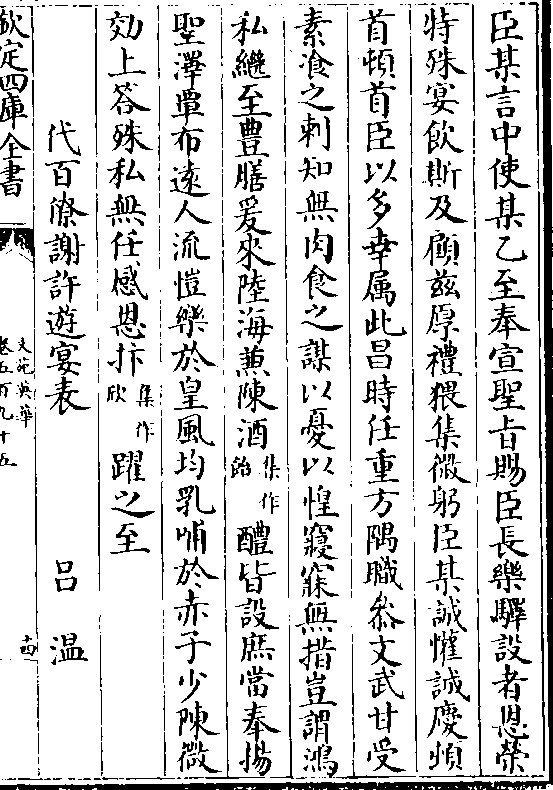 臣某言中使某乙至奉宣聖旨賜臣長樂驛設者恩榮
特殊宴飲斯及顧兹厚禮猥集微躬臣某誠懽誠慶頓
首頓首臣以多幸属此昌時任重方隅職叅文武甘受
素飡之刺知無肉食之謀以憂以惶寢寐無措豈謂鴻
私繼至豊膳爰來陸海兼陳酒集作飴醴皆設庶當奉揚
聖澤覃布遠人流愷樂於皇風均乳哺於赤子少陳微
効上答殊私無任感恩抃集作欣躍之至
代百僚謝許遊宴表　吕温
欽定四庫全書
文苑英華
卷五百九十五
十四